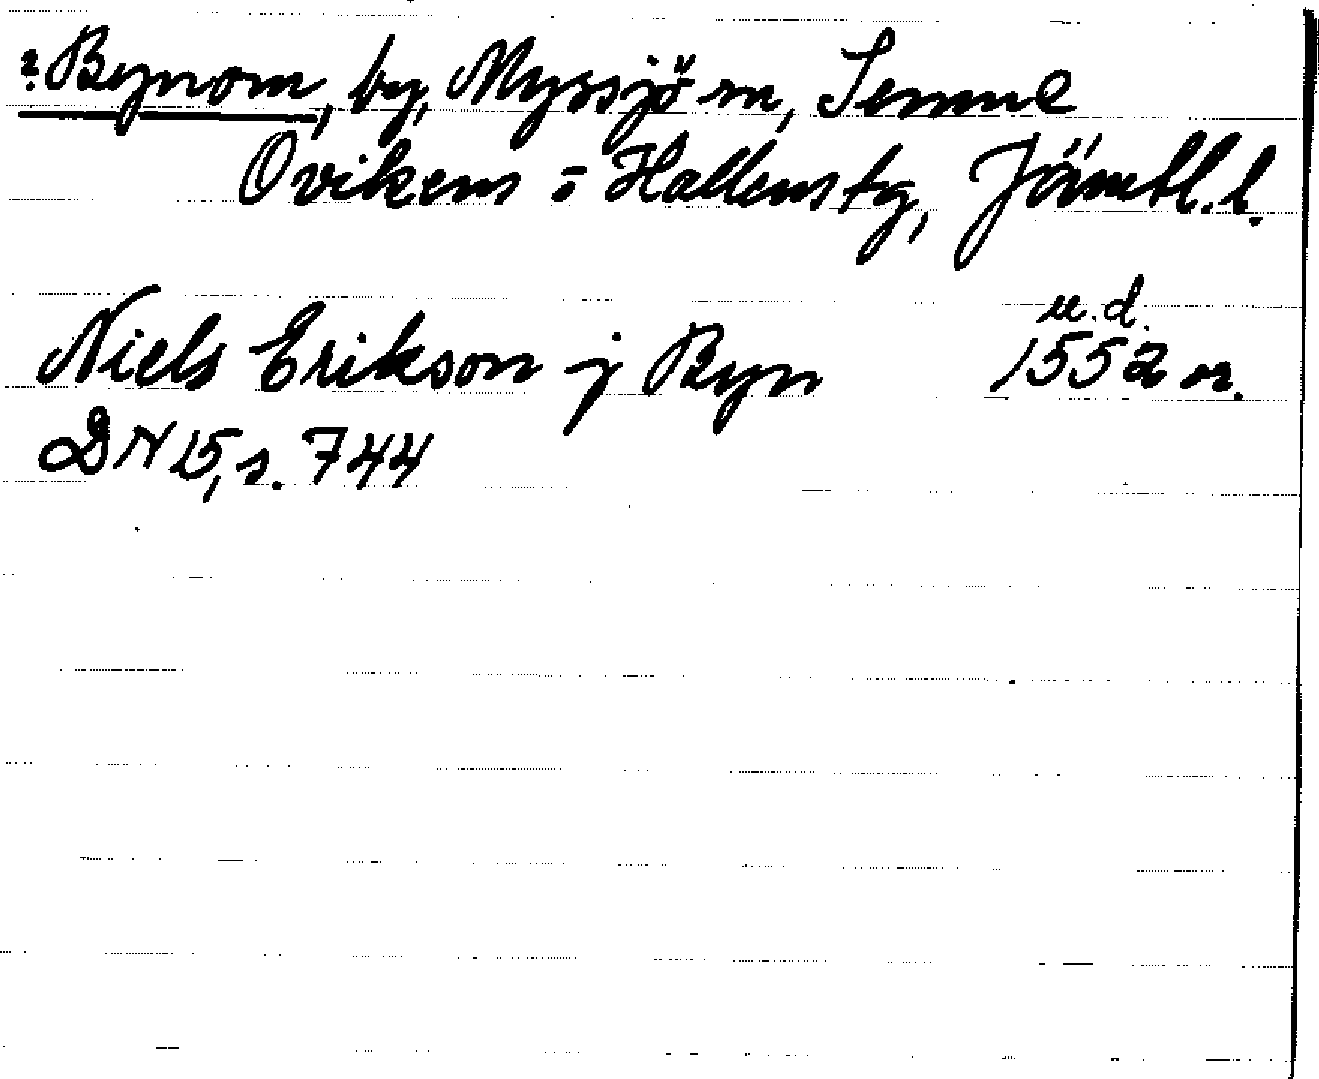 ?Bynom, by, Myssjö sn,
Ovikens o Hallens tg, Jämtl. l.
u.d.
Niels Erikson j Byn 1552 or.
DN 15, s. 744